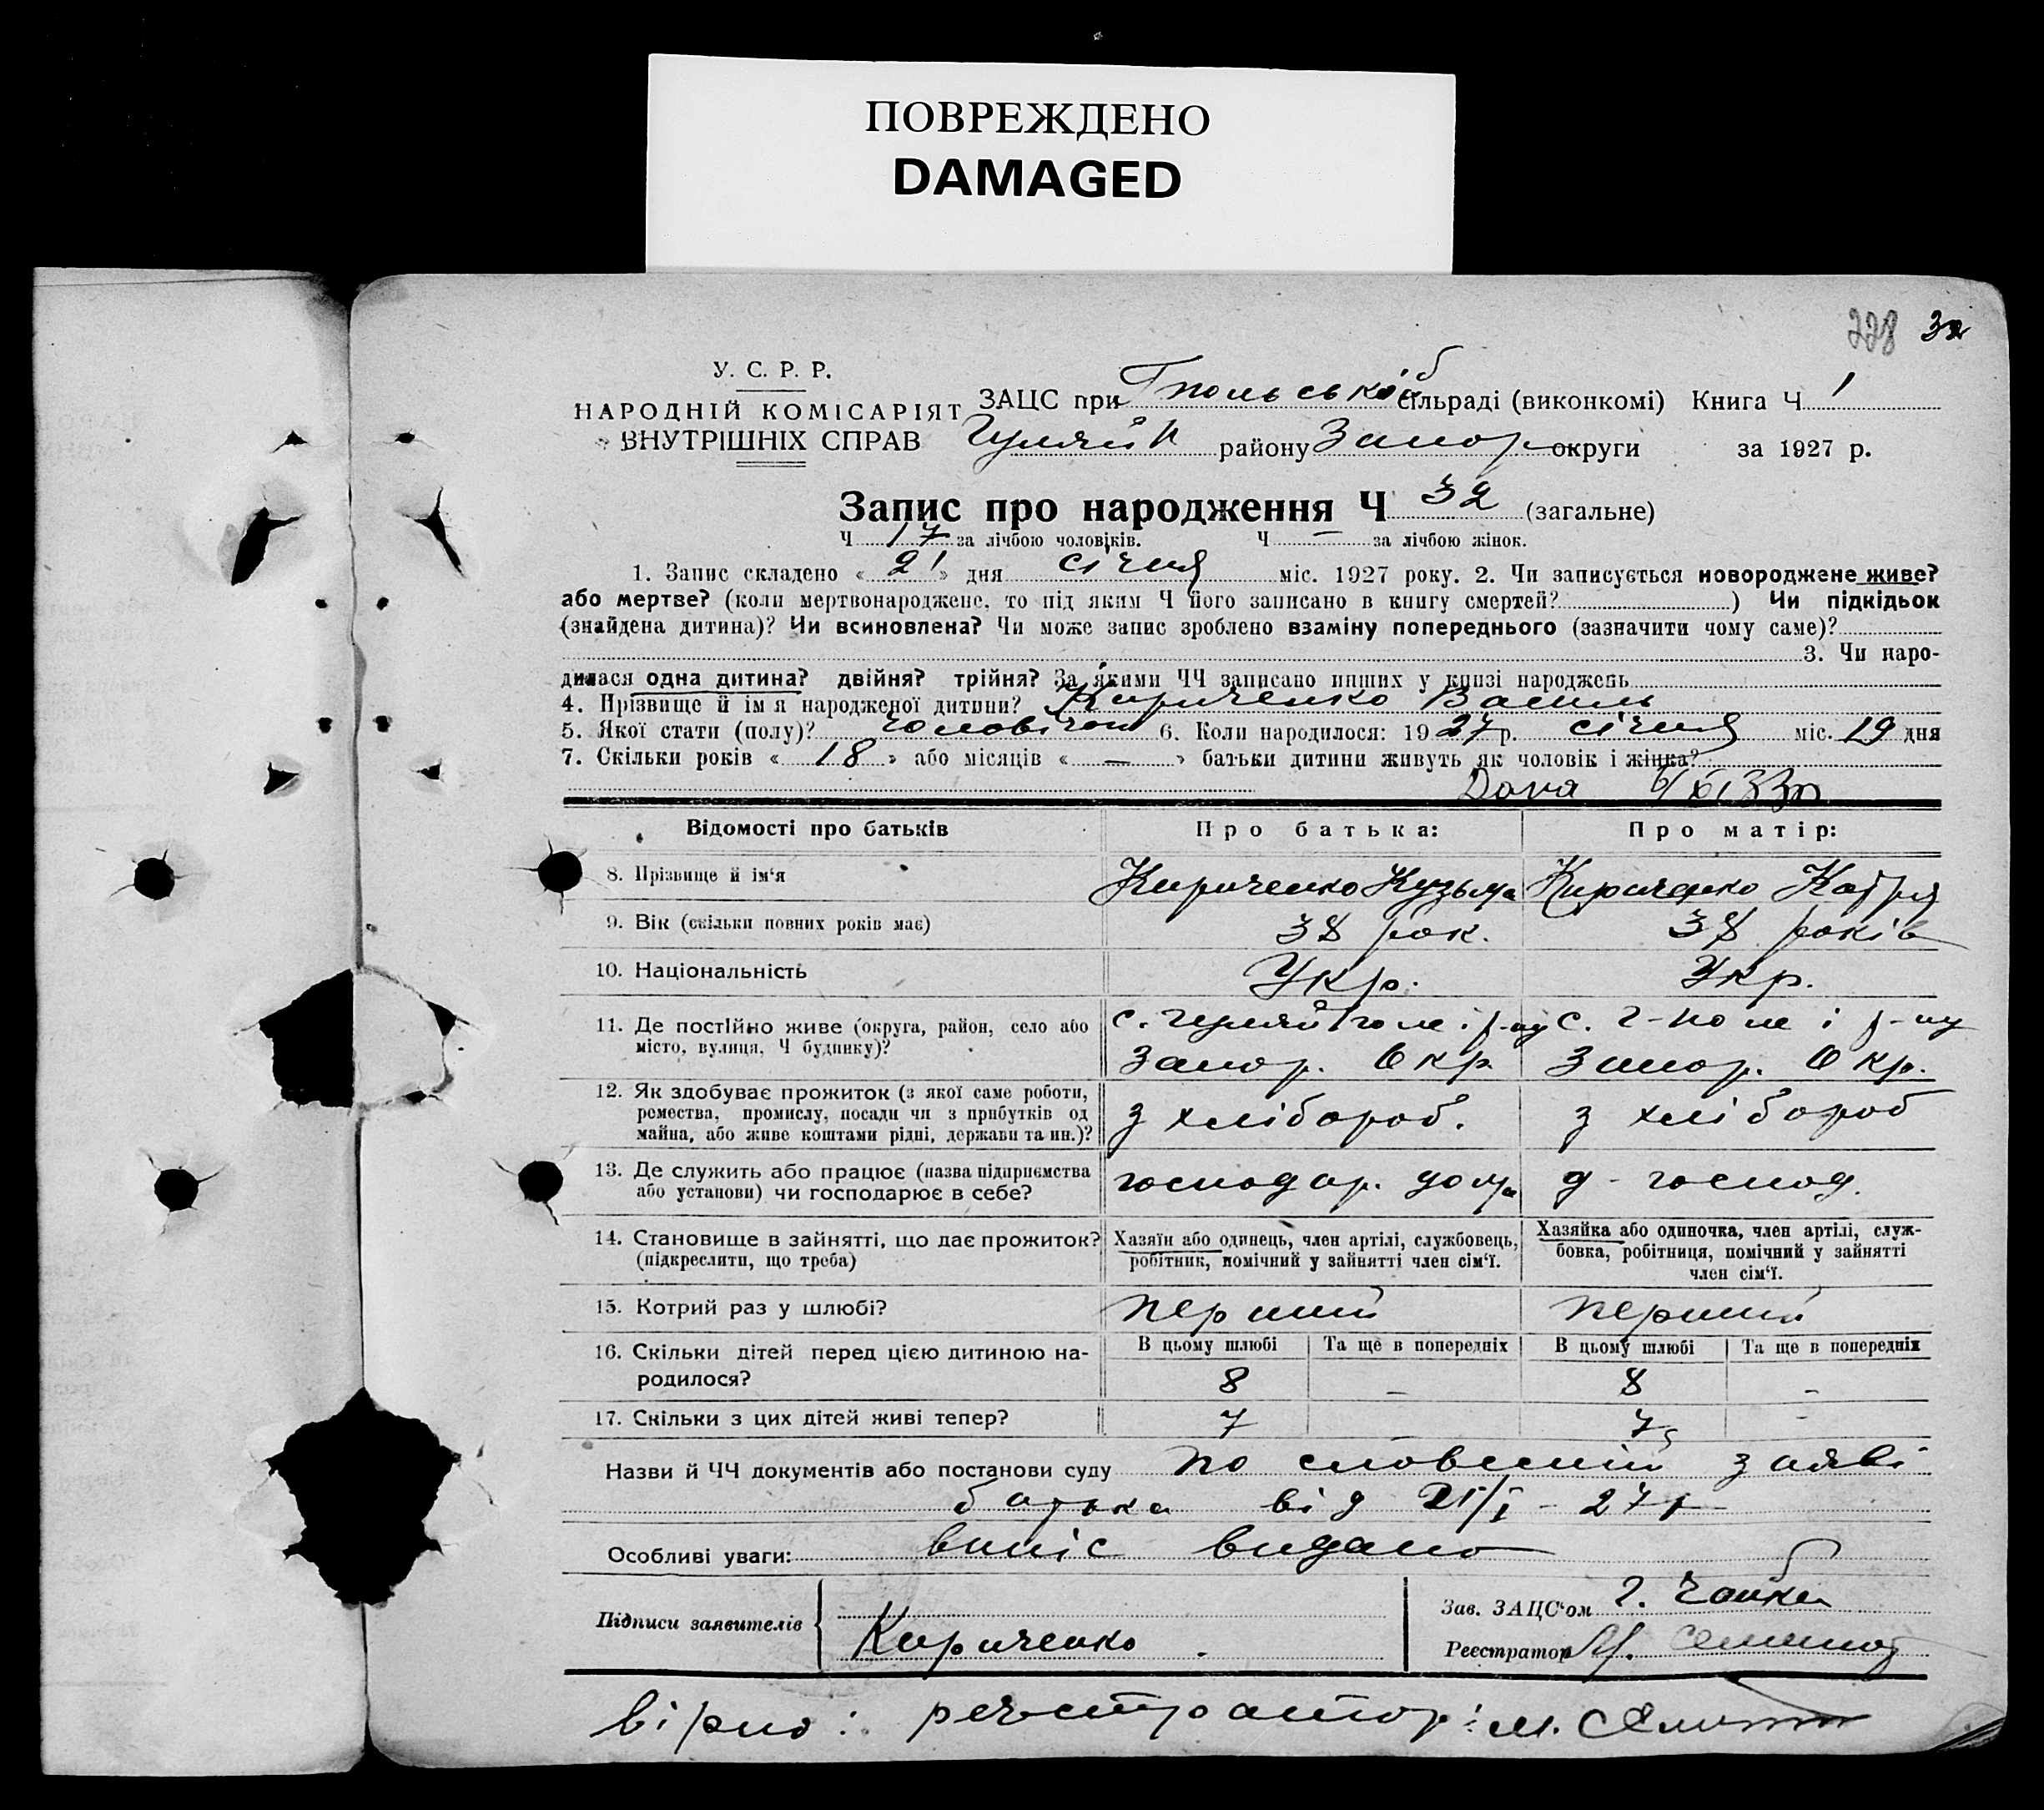 ПОВРЕЖДЕНО
DAMAGED
228 32
У. С. Р. Р.
НАРОДНІЙ КОМІСАРІЯТ
ВНУТРІШНІХ СПРАВ
ЗАЦС при Гпольській сільраді (виконкомі) Книга Ч 1
Гуляй П району Запор округи за 1927 р.
Запис про народження Ч 32 (загальне)
Ч 17 за лічбою чоловіків. Ч — за лічбою жінок.
1. Запис складено « 21 » дня січня міс. 1927 року. 2. Чи записується новороджене живе?
або мертве? (коли мертвонароджене, то під яким Ч його записано в книгу смертей? ) Чи підкідьок
(знайдена дитина)? Чи всиновлена? Чи може запис зроблено взаміну попереднього (зазначити чому саме)?
3. Чи наро-
дилася одна дитина? двійня? трійня? За якими ЧЧ записано инших у книзі народжень
4. Прізвище й ім'я народженої дитини? Кириченко Василь
5. Якої стати (полу)? чоловічої 6. Коли народилося: 1927 р. січня міс. 19 дня
7. Скільки років « 18 » або місяців « — » батьки дитини живуть як чоловік і жінка?
Відомості про батьків Про батька: Про матір:
8. Прізвище й ім'я Кириченко Кузьма Кириченко Катря
9. Вік (скільки повних років має) 38 рок. 38 років
10. Національність Укр. Укр.
11. Де постійно живе (округа, район, село або с. Гуляйполе і р-ну с. Г-поле і р-ну
місто, вулиця, Ч будинку)? Запор. Окр. Запор. Окр.
12. Як здобуває прожиток (з якої саме роботи,
ремества, промислу, посади чи з прибутків од з хлібороб. з хлібороб
майна, або живе коштами рідні, держави та ин.)?
13. Де служить або працює (назва підприємства господар. дома д-господ.
або установи) чи господарює в себе?
14. Становище в зайнятті, що дає прожиток? Хазяїн або одинець, член артілі, службовець, Хазяйка або одиночка, член артілі, служ-
(підкреслити, що треба) робітник, помічний у зайнятті член сім'ї. бовка, робітниця, помічний у зайнятті
член сім'ї.
15. Котрий раз у шлюбі? перший перший
16. Скільки дітей перед цією дитиною на- В цьому шлюбі Та ще в попередніх В цьому шлюбі Та ще в попередніх
родилося? 8 – 8 –
17. Скільки з цих дітей живі тепер? 7 7 –
Назви й ЧЧ документів або постанови суду по словесній заяві
батька від 21/I – 27 р
Особливі уваги: випіс видано
Підписи заявителів Кириченко
Зав. ЗАЦС'ом Г. Чайка
Реєстратор М.
вірно: реєстратор: М.